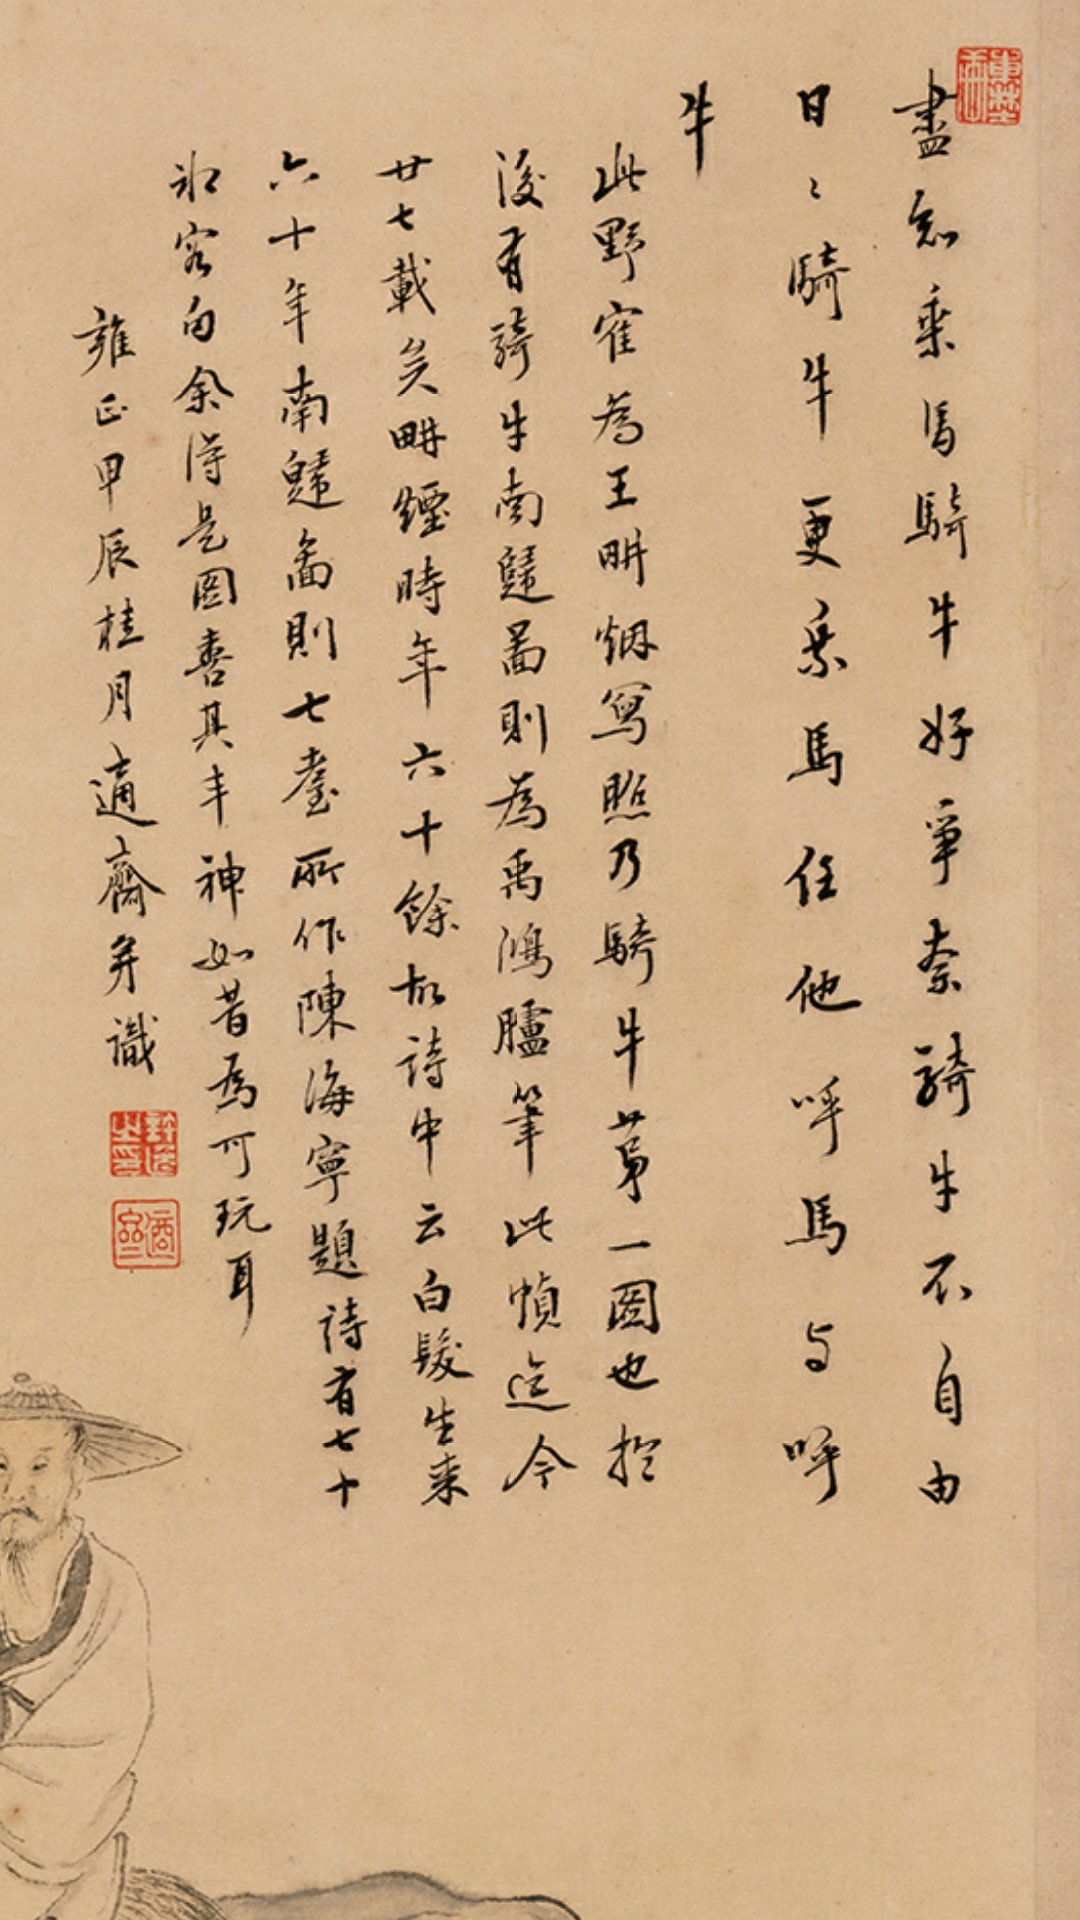 盡怱乘馬騎牛好爭奈騎牛不自由
日〻騎牛更乘馬任他呼馬与呼
牛
此野隺為王畊烟寫照乃騎牛苐一圖也
後有騎牛南歸啚則為禹鴻臚筆此幀迄今
廿七載矣畊煙時年六十餘故詩中云白髮生来
六十年南歸啚則七耋所作陳海寧題詩有七十
老客句余得是圖喜其丰神如昔為可玩耳
雍正甲辰桂月適齋弟識